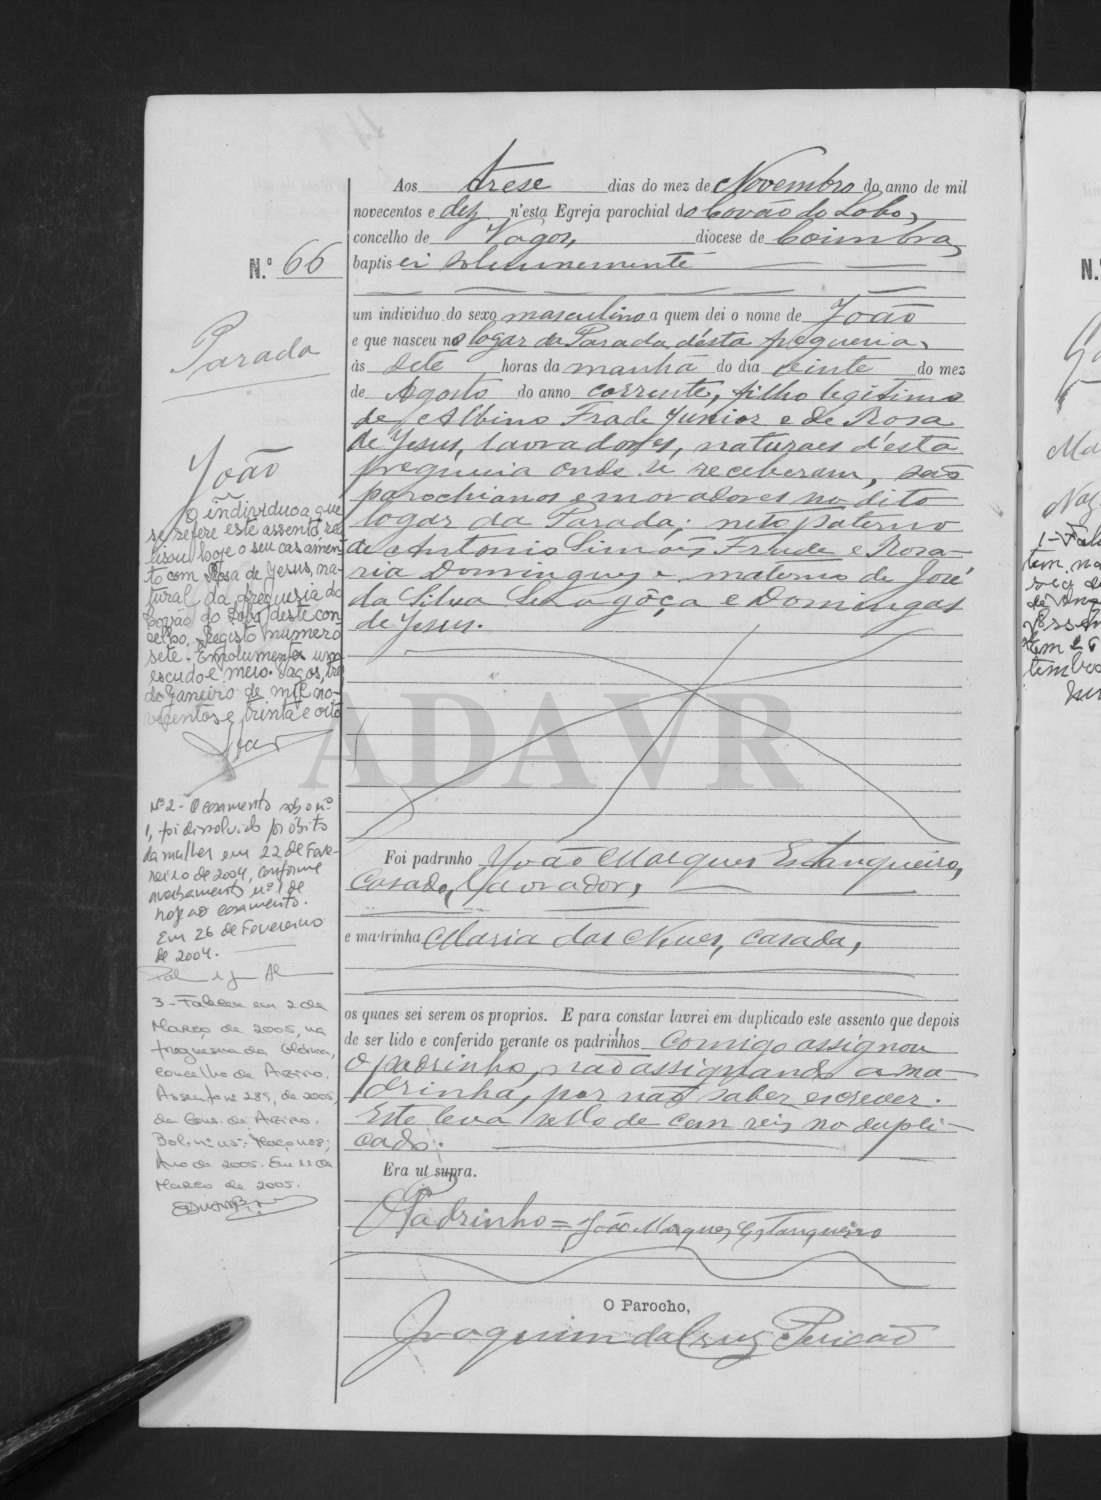 Aos trese dias do mez de Novembro do anno de mil
novecentos e dez n'esta Egreja parochial do Covão do Lobo,
concelho de Vagos, diocese de Coimbra,
N.º 66
baptisei solemnemente
um individuo do sexo masculino a quem dei o nome de João
e que nasceu no logar da Parada, d'esta freguezia,
ás sete horas da manhã do dia vinte do mez
de Agosto do anno corrente, filho legitimo
de Albino Frade Junior e de Rosa
de Jesus, lavradores, naturaes d'esta
freguezia onde se receberam, são
parochianos e moradores no dito
logar da Parada; neto paterno
de Antonio Simões Frade e Rosa-
ria Domingues e materno de José
da Silva e Domingas
de Jesus.
Foi padrinho João Marques Estanqueiro,
casado, lavrador,
e madrinha Maria das Neves, casada,
os quaes sei serem os proprios. E para constar lavrei em duplicado este assento que depois
de ser lido e conferido perante os padrinhos comigo assignou
o padrinho, não assignando a ma-
drinha, por não saber escrever.
Este leva sello de cem reis no dupli-
cado.
Era ut supra.
O Padrinho = João Marques Estanqueiro
O Parocho,
Joaquim da Cruz Pericão
Parada
João
O individuo a que
se refere este assento, rea
lisou hoje o seu casamen
to com Rosa de Jesus, na-
tural da freguesia do
Covão do Lobo, deste con-
celho. Registo numero
sete. Emolumentos um
escudo e meio. Vagos, tres
de Janeiro de mil no-
vecentos e trinta e oito
Nº 2 - O casamento sob o nº
1, foi dissolvido por óbito
da mulher em 22 de Feve-
reiro de 2004, conforme
averbamento nº 1 de
hoje ao casamento.
Em 26 de Fevereiro
de 2004.
3 - Faleceu em 2 de
Março de 2005, na
freguesia da Glória,
concelho de Aveiro.
Assento nº 289, de 2005,
da Cons. de Aveiro.
Ano de 2005. Em 11 de
Março de 2005.
ADAVR
N.º